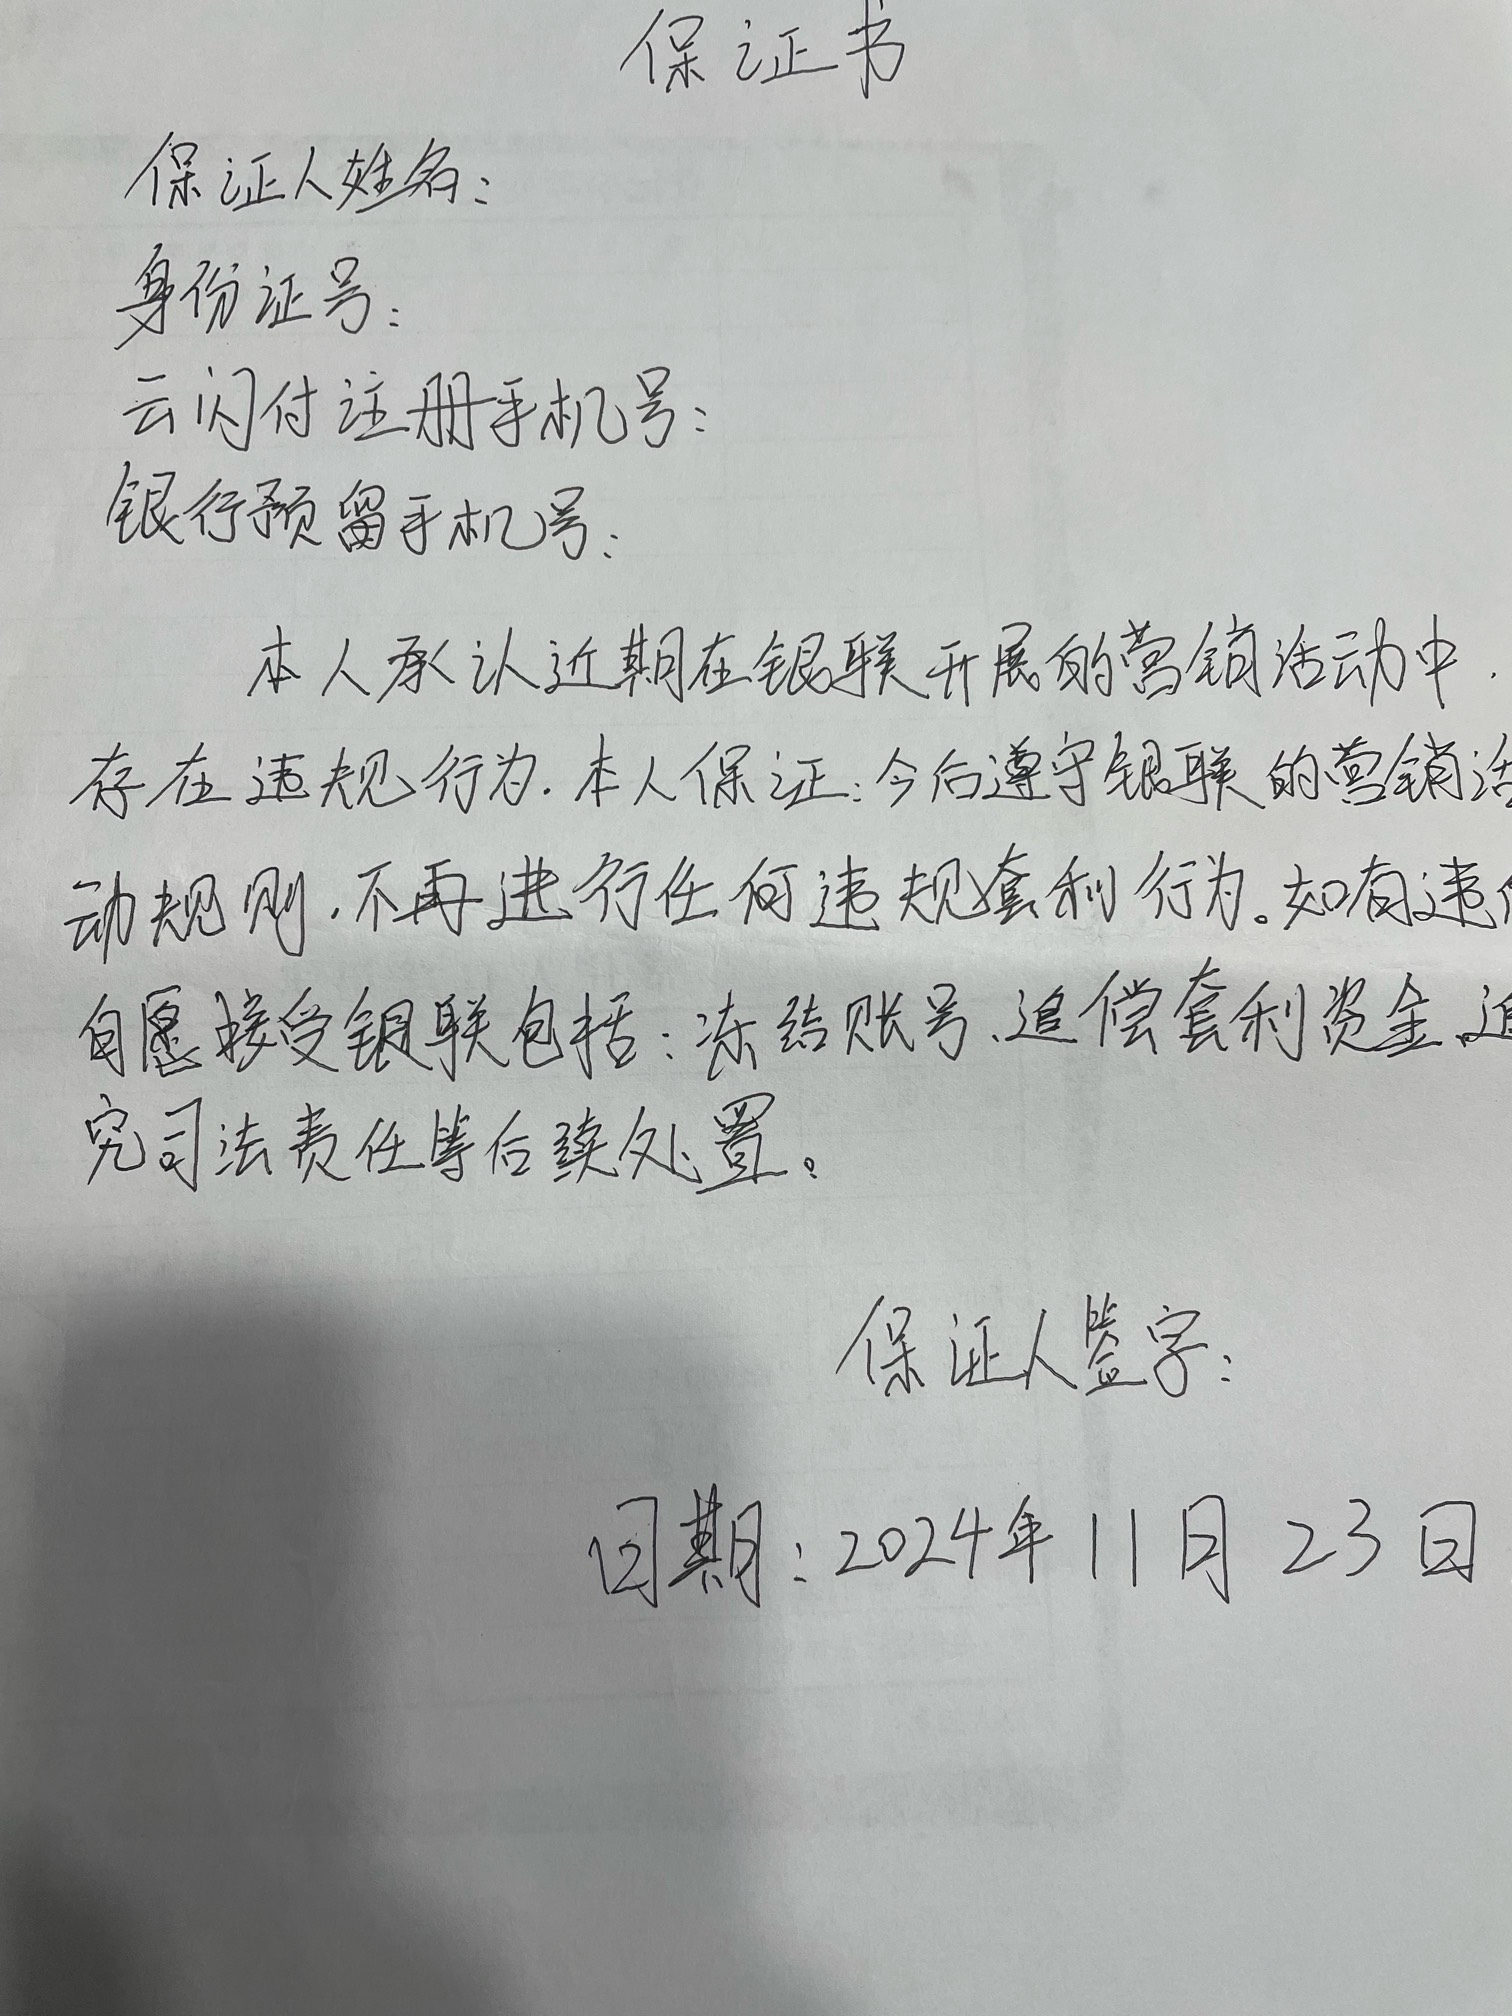 保证书
保证人姓名：
身份证号：
云闪付注册手机号：
银行预留手机号：
本人承认近期在银联开展的营销活动中，
存在违规行为.本人保证：今后遵守银联的营销活
动规则.不再进行任何违规套利行为。如有违
自愿接受银联包括：冻结账号、追偿套利资金、追
究司法责任等后续处置。
保证人签字：
日期：2024年11月23日